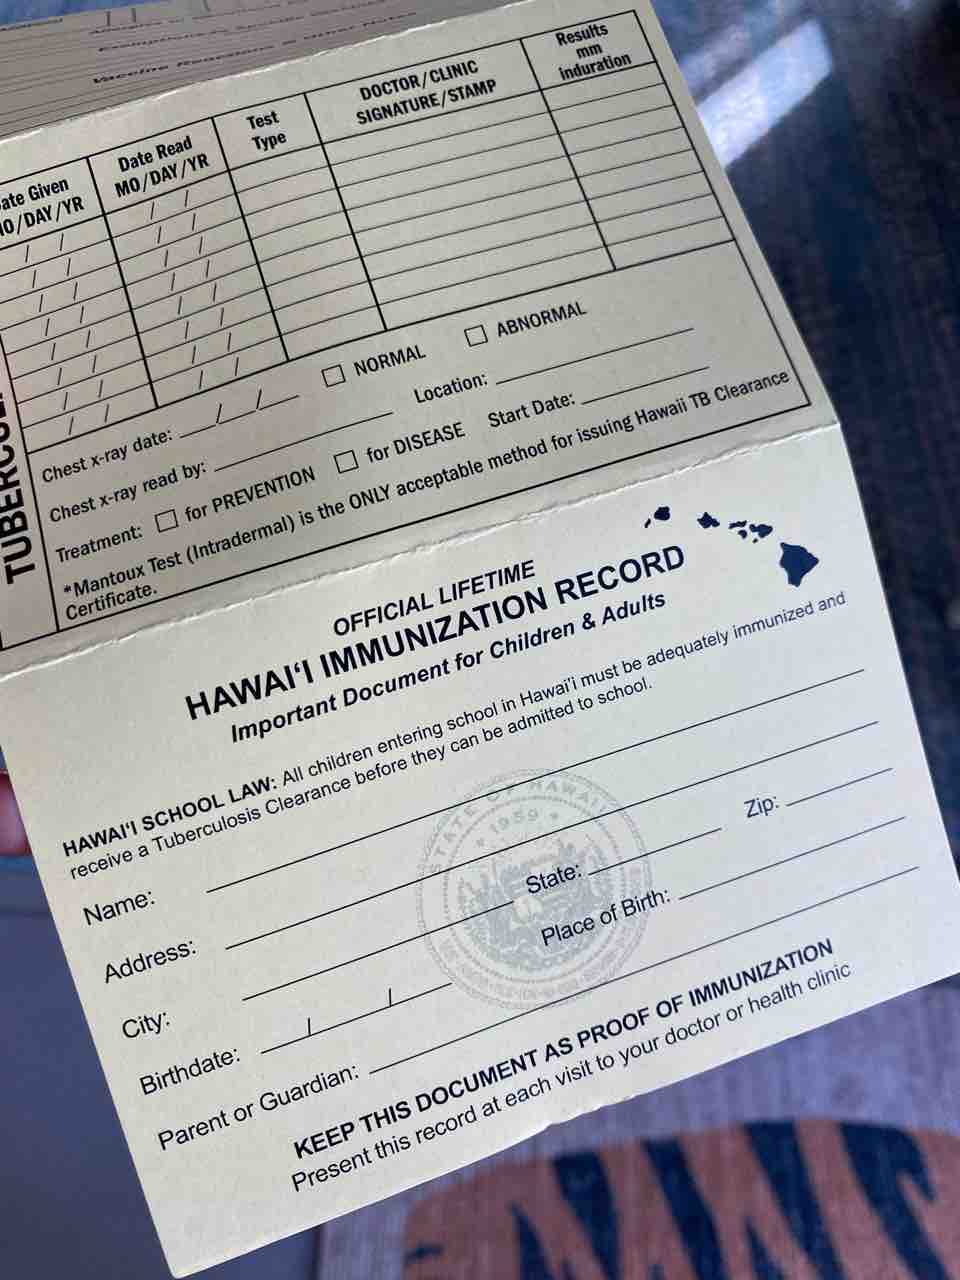 Vaccine Reactions & Other Notes
TUBERCUL
Date Given
MO/DAY/YR
Date Read
MO/DAY/YR
Test
Type
DOCTOR/CLINIC
SIGNATURE/STAMP
Results
mm
induration
Chest x-ray date: __/__/__ ☐ NORMAL ☐ ABNORMAL
Chest x-ray read by: Location:
Treatment: ☐ for PREVENTION ☐ for DISEASE Start Date:
*Mantoux Test (Intradermal) is the ONLY acceptable method for issuing Hawaii TB Clearance
Certificate.
OFFICIAL LIFETIME
HAWAI‘I IMMUNIZATION RECORD
Important Document for Children & Adults
HAWAI'I SCHOOL LAW: All children entering school in Hawai'i must be adequately immunized and
receive a Tuberculosis Clearance before they can be admitted to school.
STATE OF HAWAII
1959
Name:
Address:
City: State: Zip:
Birthdate: / / Place of Birth:
Parent or Guardian:
KEEP THIS DOCUMENT AS PROOF OF IMMUNIZATION
Present this record at each visit to your doctor or health clinic